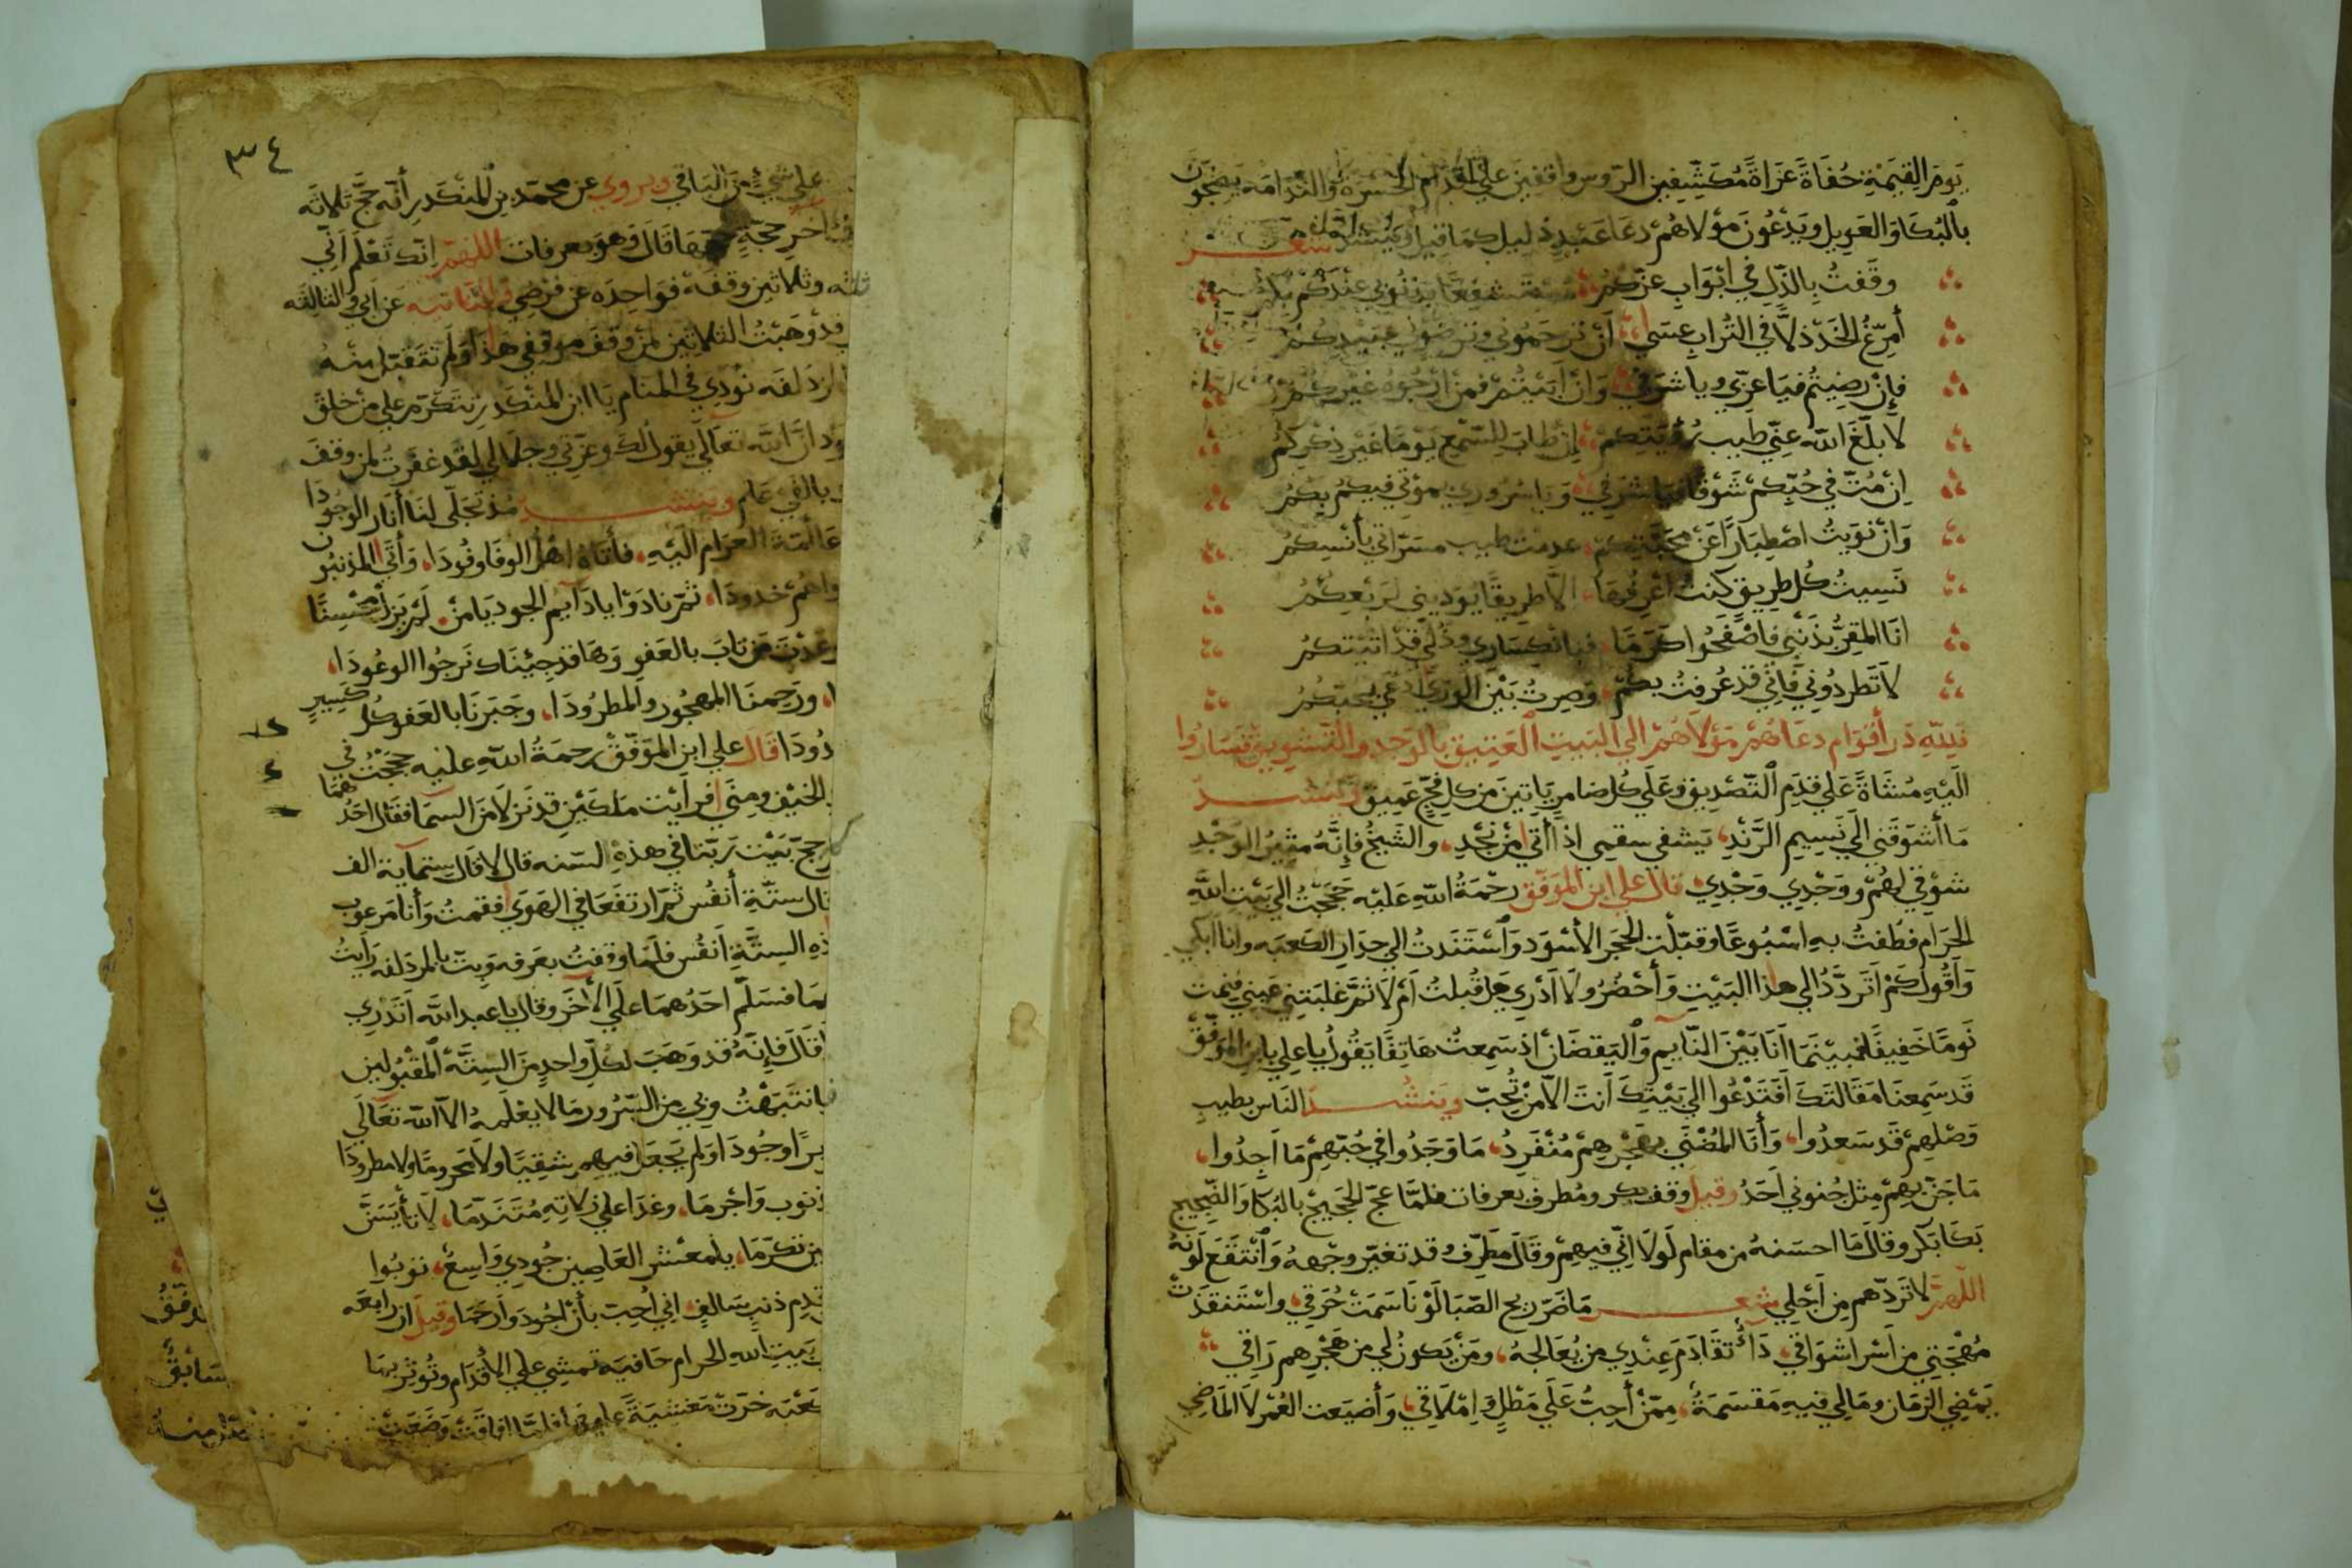 يَومَ القِيَمَةِ حُفَاةً عَرَاةً مُكَشِّفِين الرّوس واقفينَ علي اقدام الحسرة والنّدامه يضجّون
بالبُكَا وَالعَوِيل ويَدْعُونَ مَوْلاهُمْ دعَا عَبْدٍ ذليل كمَا قيل وينشد شعر
وقَفتُ بِالذّلِ في ابْوَابِ عزّكمُ مستشفعًا بذنُوبي عندكم بكم
أمرّغُ الخَدّ ذلاً في التُّرابِ عسَي أنْ ترحَمُوني وترضَوني عبيدكم
فإنْ رضيتُم فيَا عزّي ويا شرَفي وَانْ ابَيتُمْ فمَنْ ارْجُوهُ غيركم
لا بلّغَ الله عنّي طيب رُؤيَتكمْ إن طابَ للسّمع يَومًا غيْر ذكركُم
اِنْ مُتّ في حُبّكمْ شَوْقًا فيا شرفي وَيا سُرُوري بموتي فيكمُ بكمُ
وَانْ نوَيتُ اصْطِبَارًا عَنْ محَبّتِكم عدمت طيب مسَرّاتي بأنسِكمُ
نَسِيتُ كُل طريق كنتُ اعْرِفهَا الّا طرِيقًا يوديني لرَبْعِكمُ
انَا المقِرُّ بذَنْبي فاصْفَحُوا كرَمًا فبانكِسَاري وذُلي قدْ اتيتكمُ
لاَ تَطردُوني فَاِنّي قد عُرفتُ بكُم وَصِرتُ بَيْن الوَرَي ادعَي بحُبّكُمُ
فَلِلّهِ دَر أقوَام دعَاهُمْ مَوْلاهُمْ الي البَيتِ العَتيق بالوَجد والتشويق فسَارُوا
الَيْهِ مُشَاةً عَلي قدَمِ التّصْديق وعَلَي كُل ضامر يَاتِينَ مِن كل فجّ عَمِيق وينشد
مَا أشوَقَني الَي نَسِيم الرَّنْدِ يَشفي سقمِي اذا أتي مِنْ نجْدِ والشِّيحُ فإنَّهُ مثِيرُ الوَجْدِ
شوْقي لهُمْ ووَجْدِي وَجْدِي قال علي ابن الموفّق رحْمَةُ اللهِ عَليْه حَجَجْتُ الي بَيْتِ اللهِ
الحرَام فطفتُ بهِ اسْبُوعًا وقبّلْت الحَجَر الأسْوَد وَاسْتَنَدتُ الي جِدَارِ الكعبَه وانا ابكي
وَأقُول كمْ اتَردّدُ الي هذا البَيْتِ وَأحْضُرُ ولاَ ادْري هل قُبلتُ أمْ لا ثمّ غلبَتني عَيني فنمتُ
نَومًا خَفِيفًا فبَيْنَمَا انَا بَيْنَ النّايم وَاليَقضَانْ اذ سَمِعتُ هَاتِفًا يقُولُ يا علي يا ابن الموَفّق
قَد سَمِعنَا مَقَالتَكَ افَتَدْعُوا الي بَيْتِكَ انتَ الاّ مَنْ تُحِبّ ويَنشُد النّاس بطيبِ
وَصْلِهِمْ قَد سَعدُوا وَأنَا المُضْنَي بهَجْرِهِمْ مُنْفَردُ مَا وَجَدُوا في حُبّهِمْ مَا اَجدُوا
مَا جَنّ بهِمْ مِثل جُنوني احَدُ وقيل وقفَ بكر ومُطرف بعرفات فلمّا عجّ الحَجيجْ بالبُكَا وَالضّجيج
بَكَا بَكر وقَالَ مَا احسَنهُ من مقام لَولاَ انّي فيهِمْ وقَالَ مطرّف وقد تغيّر وجههُ وَانْتقَعَ لَونَهُ
اللّهمّ لا تَردّهم مِن اَجْلي شعر مَا ضَرّ ريح الصّبَا لَوْ نَاسَمَتْ حُرَقي واسْتَنقذَتْ
مُهْجَتِي من اَسْر اشوَاقي دَاءٌ تقَادَمَ عِنْدِي من يُعَالجهُ ومَنْ يَكونُ لي من هَجْرِهم رَاقي
يَمْضِي الزمَان ومَا لي فيهِ مَقسَمَةٌ ممّنْ أحِبُّ عَلَي مَطْلٍ وَامْلاَقي وَأضيَعت العُمْر لا المَاضِي
٣٤
علي شيْءٍ مِنَ البَاقي ويروي عن محمّد بن المنكَدر أنّه حَجّ ثلاثَه
اخر حجّةٍ حجهَا قَالَ وَهوَ بعرفات اللهمّ إنّك تَعْلم أنّي
وثلاثين وقفه فوَاحِدَه عن فرضِي والثّانيه عَن أبي والثالثه
قدْ وَهَبْتُ الثّلاثين لمنْ وقَفَ موقفي هَذَا وَلَم تتقَبّل منهُ
ازدَلفَه نُودِي في المنام يَا ابن المنْكَدر تتكَرّم علي منْ خلقَ
انّ اللهَ تعَالي يقول لكَ وعزّتي وجلاَلي لقد غفَرتُ لمن وقفَ
بالفَي عَام وينشد مُذ تجَلّي لنَا أنَار الوجُودَا
العرَام الَيْهِ فأتَاهُ اهْلُ الوفَا وفُودَا وَأتَي المذنبُون
خدُودَا ثمّ نادَوْا يا دَايم الجود يَا منْ لَمْ يَزَل مُحْسِنًا
مَن تابَ بالعَفوِ وَهَا قد جِيْنَاك نَرجُوا الوعُودَا
ورَحِمنَا المهجُورَ والمطرُودَا وجَبَرنَا بالعَفو كُل كسِيرٍ
قَالَ علي ابن الموَفّقْ رحمَةُ اللهِ عليْه حججْتُ في
الخيْف ومِنَي فرايْت مَلَكيْن قد نَزلا مِنَ السمَا فقَال احَدُهمَا
حجّ بَيْتَ رَبّنا في هذهِ السّنه قال لا قَال ستمآية الف
قال ستّةِ أنفُس ثمّ ارتفعَا في الهَوَي فقمتُ وَأنا مَرعوب
السِتّةِ اَنْفُس فلَمّا وقفتُ بعَرفه وَبِتّ بالمزدَلفه رَايتُ
فسَلّم احَدُهمَا علَي الآخَر وقال يا عبد اللهِ اَتَدْري
قَالَ فإنّهُ قد وَهَبَ لكلّ واحدٍ مِنَ السِتّه المقْبُولين
فانتَبَهْتُ وبي مِن السّرُور مَا لا يعْلَمهُ الاّ الله تعَالَي
وجُودَا وَلم يَجعَل فيهِم شقِيّا ولاَ محرومًا ولا مطرودَا
وَاجْرمَا وغدَا علي زلاتِهِ مُتَنَدّمَا لاَ تأيَسَنَّ
تكرّمَا يا معْشر العَاصِين جُودِي وَاسِعٌ توبُوا
ذنبٍ سَالفٍ انّي اُحِبّ بأنْ اجُودَ وَارحمَا وقيل ان رابعَه
بَيتِ اللهِ الحرام حَافيَه تمشِي علي الاقْدَام وتُوثِر بهَا
خرّتْ مَغشِيَةً عليهَا فلمّا افاقَتْ وَضَعَتْ